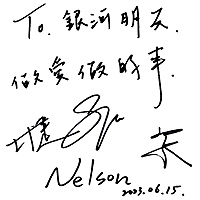 To. 銀河朋友.
做愛做的事.
Nelson
2023.06.15.